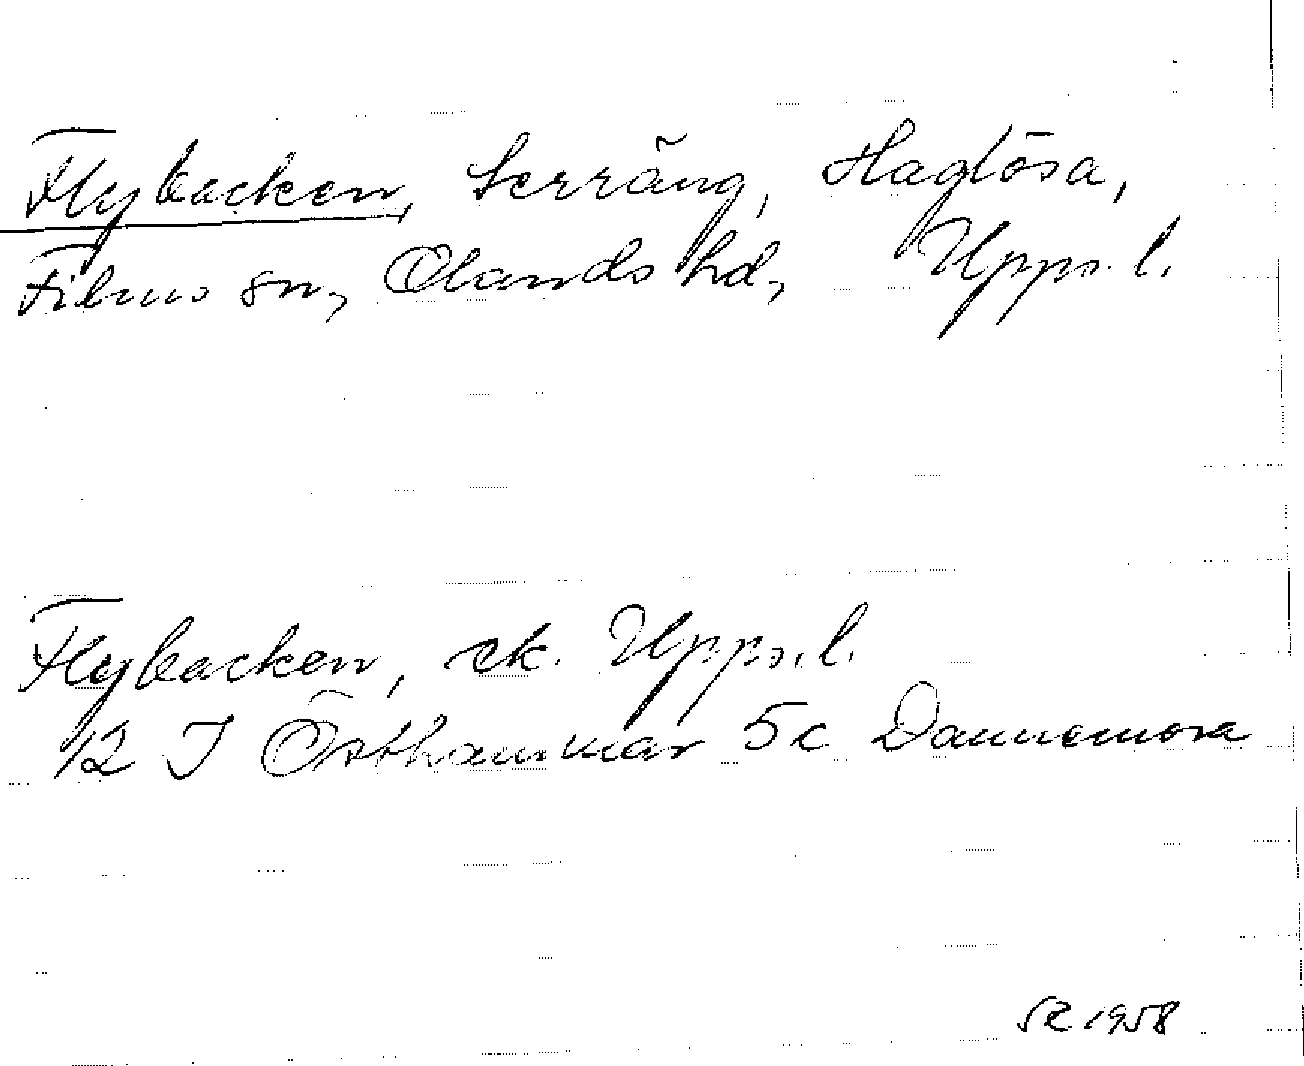 Flybacken, terräng, Haglösa,
Films sn, Olands hd, Upps. l.
Flybacken, ek. Upps. l.
12 I Östhammar 5c Dannemora
SR 1958